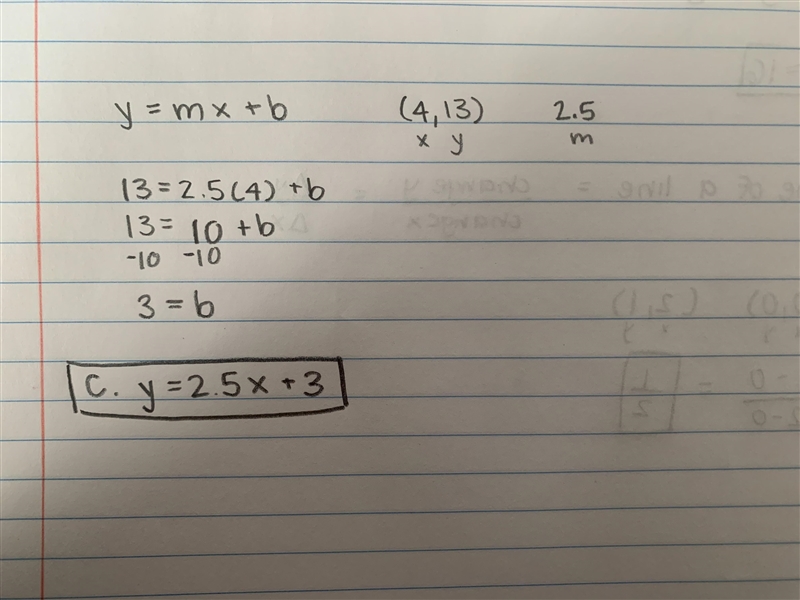 y = mx + b (4,13) 2.5
x y m
13 = 2.5(4) + b
13 = 10 + b
-10 -10
3 = b
C. y = 2.5x + 3